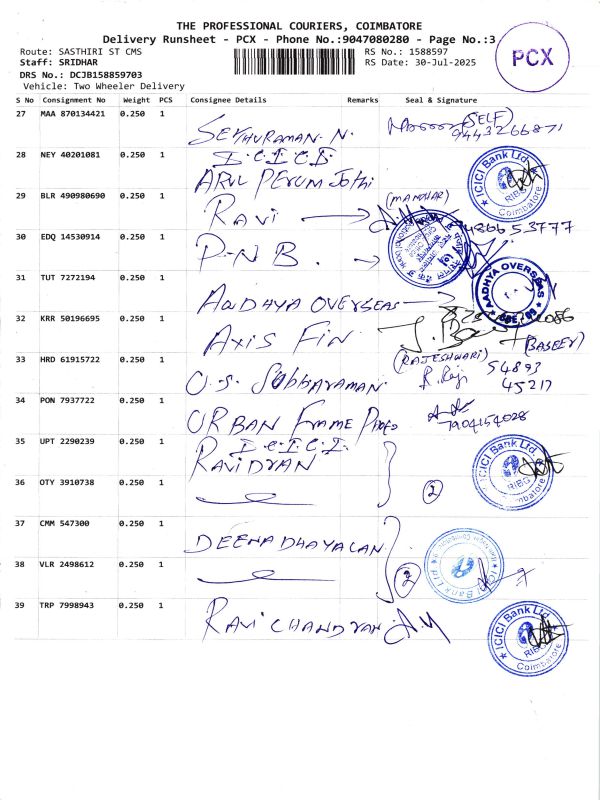 THE PROFESSIONAL COURIERS, COIMBATORE
Delivery Runsheet - PCX - Phone No.:9047080280 - Page No.:3
Route: SASTHIRI ST CMS RS No.: 1588597
Staff: SRIDHAR RS Date: 30-Jul-2025
DRS No.: DCJB158859703
Vehicle: Two Wheeler Delivery
PCX
S No Consignment No Weight PCS Consignee Details Remarks Seal & Signature
27 MAA 870134421 0.250 1 SETHURAMAN. N. (SELF)
9443266871
28 NEY 40201081 0.250 1 I.C.I.C.I.
ARUL PERUM Jothi
ICICI Bank Ltd. RIBG Coimbatore
29 BLR 490980690 0.250 1 RAVI (MANOHAR)
30 EDQ 14530914 0.250 1 P.N.B.
31 TUT 7272194 0.250 1 AADHYA OVERSEAS
AADHYA OVERSEAS
32 KRR 50196695 0.250 1 AXIS FIN (BASEER)
33 HRD 61915722 0.250 1 U.S. SUBBARAMAN (RAJESHWARI)
R. Raji 54893
45217
34 PON 7937722 0.250 1 URBAN FRAME
7904154028
35 UPT 2290239 0.250 1 I.C.I.C.I.
RAVIDRAN
ICICI Bank Ltd. RIBG Coimbatore
36 OTY 3910738 0.250 1 2
37 CMM 547300 0.250 1 DEENADHAYALAN
38 VLR 2498612 0.250 1 2
39 TRP 7998943 0.250 1 RAVICHANDRAN
ICICI Bank Ltd. RIBG Coimbatore